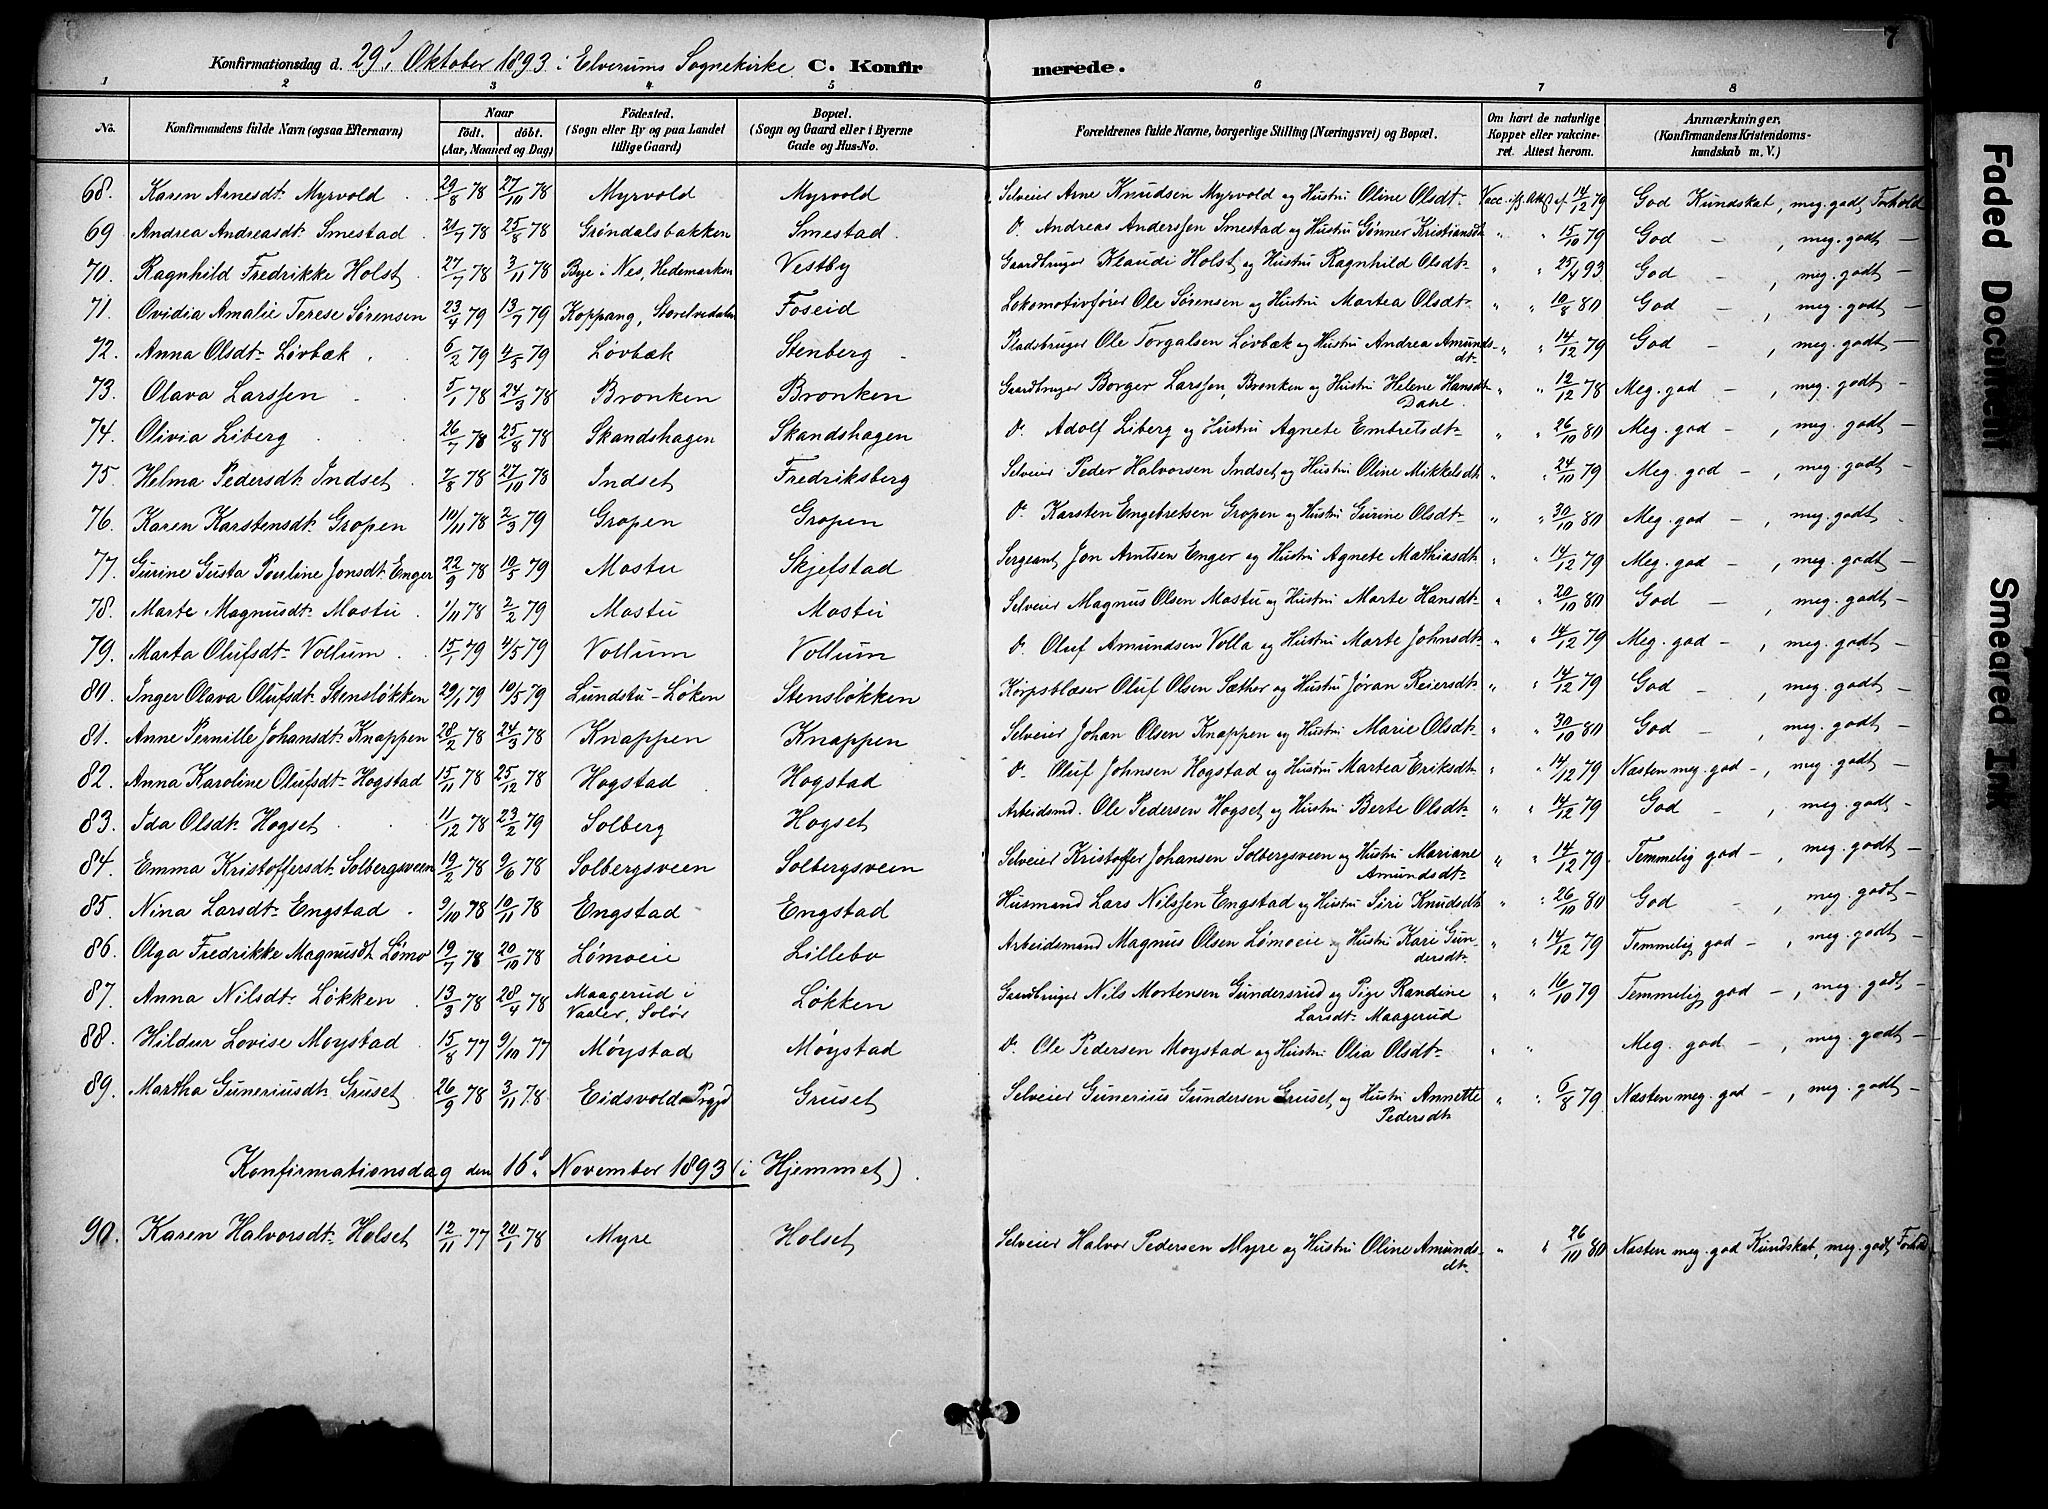 7
Konfirmationsdag d. 29d Oktober 1893 i Elverums Sognekirke C. Konfirmerede.
1 2 3 4 5 6 7 8
No. | Konfirmandens fulde Navn (ogsaa Efternavn) | Naar født. døbt. (Aar, Maaned og Dag) | Födested. (Sogn eller By og paa Landet tillige Gaard) | Bopæl. (Sogn og Gaard eller i Byerne Gade og Hus-No. | Forældrenes fulde Navne, borgerlige Stilling (Næringsvei) og Bopæl. | Om havt de naturlige Kopper eller vakcineret. Attest herom. | Anmærkninger. (Konfirmandens Kristendomskundskab m. V.)
68. Karen Arnesdt. Myrvold 29/8 78 27/10 78 Myrvold Myrvold Selveier Arne Knudsen Myrvold og Hustru Oline Olsdt. Vacc. 14/12 79 God Kundskab, meg. godt Forhold
69 Andrea Andreasdt. Smestad 20/7 78 25/8 78 Gröndalsbakken Smestad D. Andreas Anderssen Smestad og Hustru Gønner Kristiansdt " " 15/10 79 God — , meg. godt —
70. Ragnhild Fredrikke Holst 27/7 78 3/11 78 Bye i Nes, Hedemarken Vestby Gaardbruger Klaudi Holst og Hustru Ragnhild Olsdt. " " 25/4 93 God — , meg. godt —
71. Ovidia Amalie Terese Sørensen 23/4 79 13/7 79 Koppang, Storelvedalen Foseid Lokomotivfører Ole Sørensen og Hustru Martea Olsdt. " " 10/8 80 God — , meg. godt —
72. Anna Olsdt. Løvbæk 6/2 79 4/5 79 Løvbæk Stenberg Pladsbruger Ole Torgalsen Løvbæk og Hustru Andrea Amundsdt. " " 14/12 79 God — , meg. godt —
73. Olava Larssen 5/1 78 24/3 78 Bronken Bronken Gaardbruger Borger Larssen, Bronken og Hustru Helene Hansdt. Dahl. " " 12/12 78 Meg. god — , meg. godt —
74. Olivia Liberg 26/7 78 25/8 78 Skandshagen Skandshagen D. Adolf Liberg og Hustru Agnete Embretsdt. " " 26/10 80 Meg. god — , meg. godt —
75. Helma Pedersdt. Indset 7/8 78 27/10 78 Indset Fredriksberg Selveier Peder Halvorsen Indset og Hustru Oline Mikkelsdt. " " 24/10 79 Meg. god — , meg. godt —
76. Karen Karstensdt. Gropen 10/11 78 2/3 79 Gropen Gropen D. Karsten Engebretsen Gropen og Hustru Gurine Olsdt. " " 30/10 80 Meg. god — , meg. godt
77. Gurine Gusta Pouline Jonsdt. Enger 22/9 78 10/5 79 Mostu Skjefstad Sergeant Jon Arntsen Enger og Hustru Agnete Mathiasdt. " " 14/12 79 Meg. god — , meg. godt —
78. Marte Magnusdt. Mostu 1/11 78 2/2 79 Mostu Mostu Selveier Magnus Olsen Mostu og Hustru Marte Hansdt. " " 20/10 80 God — , meg. godt —
79. Marta Olufsdt. Vollum 15/1 79 4/5 79 Vollum Vollum D. Oluf Amundsen Volla og Hustru Marte Johnsdt. " " 14/12 79 Meg. god — , meg. godt —
80. Inger Olava Olufsdt. Stensløkken 29/1 79 10/5 79 Lundstu-Løken Stensløkken Korpsblæser Oluf Olsen Sæther og Hustru Jøran Reiersdt. " " 14/12 79 God — , meg. godt —
81. Anne Pernille Johansdt. Knappen 28/2 78 24/3 78 Knappen Knappen Selveier Johan Olsen Knappen og Hustru Marie Olsdt. " " 30/10 80 God — , meg. godt —
82. Anna Karoline Olufsdt. Hogstad 15/11 78 25/12 78 Hogstad Hogstad D. Oluf Johnsen Hogstad og Hustru Martea Eriksdt. " " 14/12 79 Næsten meg. god —, meg. godt —
83. Ida Olsdt. Hogset 11/12 78 23/2 79 Solberg Hogset Arbeidsmd. Ole Pedersen Hogset og Hustru Berte Olsdt. " " 14/12 79 God — , meg. godt —
84. Emma Kristoffersdt. Solbergsveen 19/2 78 9/6 78 Solbergsveen Solbergsveen Selveier Kristoffer Johansen Solbergsveen og Hustru Mariane Amundsdt. " " 14/12 79. Temmelig god — , meg. godt —
85. Nina Larsdt. Engstad 9/10 78 10/11 78 Engstad Engstad Husmand Lars Nilssen Engstad og Hustru Siri Knudsdt. " " 26/10 80 God — , meg. godt —
86. Olga Fredrikke Magnusdt. Lømo 19/7 78 20/10 78 Lømoeie Lillebo Arbeidsmand Magnus Olsen Lømoeie og Hustru Kari Gundersdt. " " 14/12 79 Temmelig god — , meg. godt —
87. Anna Nilsdt. Løkken 13/3 78 28/4 78 Maagerud i Vaaler, Solør Løkken Gaardbruger Nils Mortensen Gundersrud og Pige Randine Larsdt. Maagerud " " 16/10 79 Temmelig god — , meg. godt —
88. Hildur Lovise Moystad 15/8 77 9/10 77 Møystad Møystad D. Ole Pedersen Moystad og Hustru Olia Olsdt. " " Meg. god — , meg. godt —
89. Martha Guneriusdt. Gruset 26/9 78 3/11 78 Eidsvolds Prgjd Gruset Selveier Gunerius Gundersen Gruset og Hustru Annette Pedersdt. " " 6/8 79 Næsten meg. god — , meg. godt —
Konfirmationsdag den 16d November 1893 (i Hjemmet)
90. Karen Halvorsdt. Holset 12/11 77 20/1 78 Myre Holset Selveier Halvor Pedersen Myre og Hustru Oline Amundsdt. " " 26/10 80 Næsten meg. god Kundskab, meg. godt Forhold
Faded Document
Smeared Ink